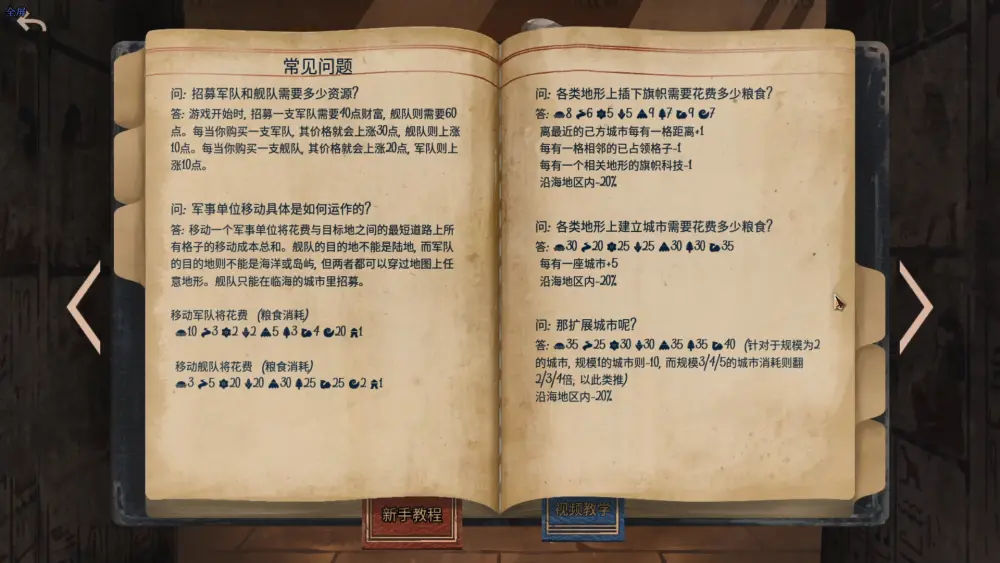 全屏
常见问题
问: 招募军队和舰队需要多少资源?
答: 游戏开始时, 招募一支军队需要40点财富, 舰队则需要60
点。每当你购买一支军队, 其价格就会上涨30点, 舰队则上涨
10点。每当你购买一支舰队, 其价格就会上涨20点, 军队则上
涨10点。
问: 军事单位移动具体是如何运作的?
答: 移动一个军事单位将花费与目标地之间的最短道路上所
有格子的移动成本总和。舰队的目的地不能是陆地, 而军队
的目的地则不能是海洋或岛屿, 但两者都可以穿过地图上任
意地形。舰队只能在临海的城市里招募。
移动军队将花费 (粮食消耗)
10 3 2 2 5 3 4 20 1
移动舰队将花费 (粮食消耗)
3 5 20 20 30 25 25 2 1
问: 各类地形上插下旗帜需要花费多少粮食?
答: 8 6 5 5 9 7 9 7
离最近的己方城市每有一格距离+1
每有一格相邻的已占领格子-1
每有一个相关地形的旗帜科技-1
沿海地区内-20%
问: 各类地形上建立城市需要花费多少粮食?
答: 30 20 25 25 30 30 35
每有一座城市+5
沿海地区内-20%
问: 那扩展城市呢?
答: 35 25 30 30 35 35 40 (针对于规模为2
的城市, 规模1的城市则-10, 而规模3/4/5的城市消耗则翻
2/3/4倍, 以此类推)
沿海地区内-20%
新手教程
视频教学